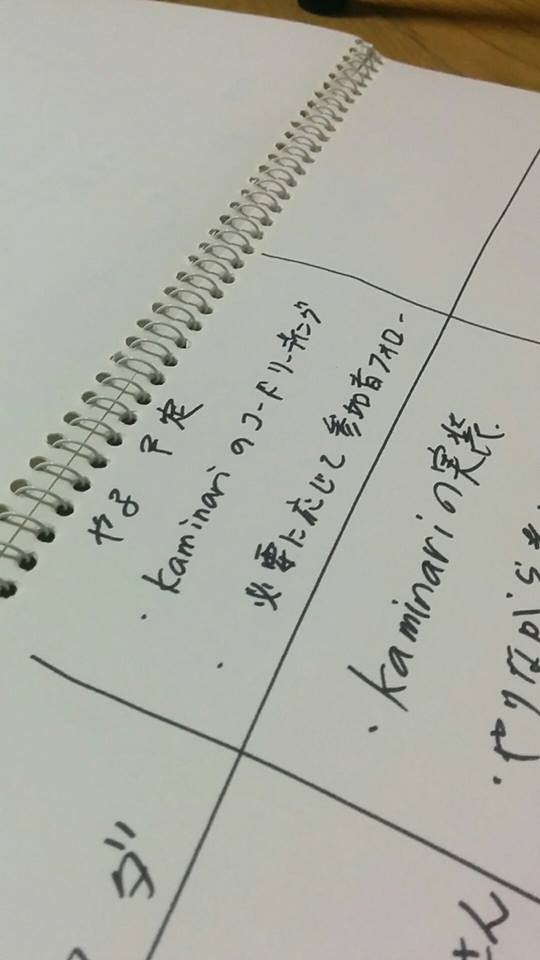 やる 予定
・kaminari のコードリーディング
・必要に応じて参加者フォロー
・kaminariの実装
・やりながら
ダ
さん